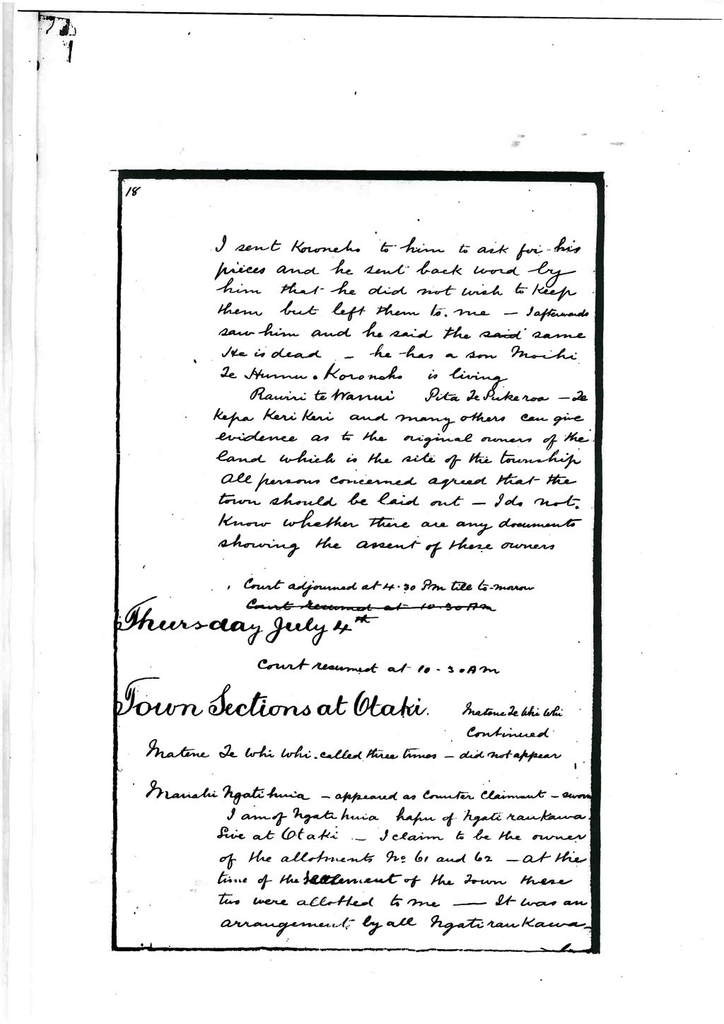 18
I sent Koroneho to him to ask for his
pieces and he sent back word by
him that he did not wish to keep
them but left them to me — I afterwards
saw him and he said the said same
He is dead — he has a son Moihi
Te Humu. Koroneho is living
Rawiri te Wanui Pita Te Pukeroa — Te
Kepa Keri Keri and many others can give
evidence as to the original owners of the
land which is the site of the township
All persons concerned agreed that the
town should be laid out — I do not
Know whether there are any documents
showing the assent of these owners
Court adjourned at 4.30 PM till to-morrow
Court resumed at 10.30 AM
Thursday July 4th
Court resumed at 10-30 AM
Town Sections at Otaki. Matene Te Whi Whi
Continued
Matene Te Whi Whi. called three times — did not appear
Manahi Ngatihuia — appeared as Counter Claimant — sworn
I am of Ngatihuia hapu of Ngatiraukawa
Live at Otaki — I claim to be the owner
of the allotments No 61 and 62 — at the
time of the settlement of the Town these
two were allotted to me — It was an
arrangement by all Ngatiraukawa